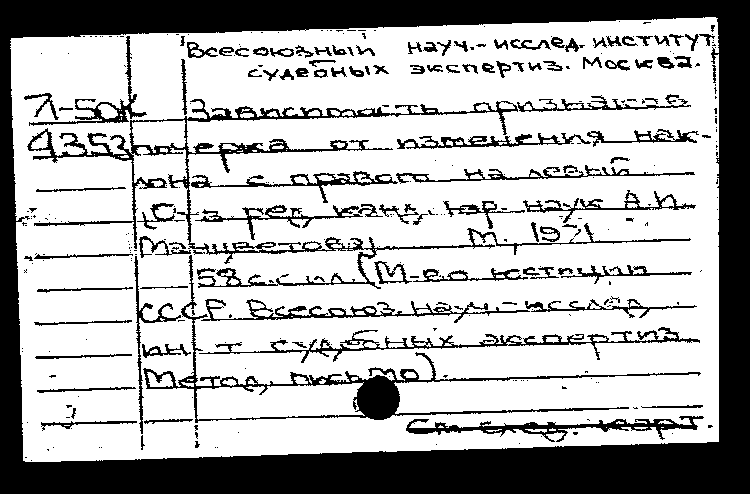 Всесоюзный науч.-исслед. институт
судебных экспертиз. Москва.
71-50К Зависимость признаков
4353 почерка от изменения нак-
лона с правого на левый.
(Отв. ред. канд. юр. наук А.И.
Манцветова) М., 1971
58 с. с ил. (М-во юстиции
СССР. Всесоюз. науч.-исслед.
ин-т судебных экспертиз.
Метод. письмо).
См след. карт.